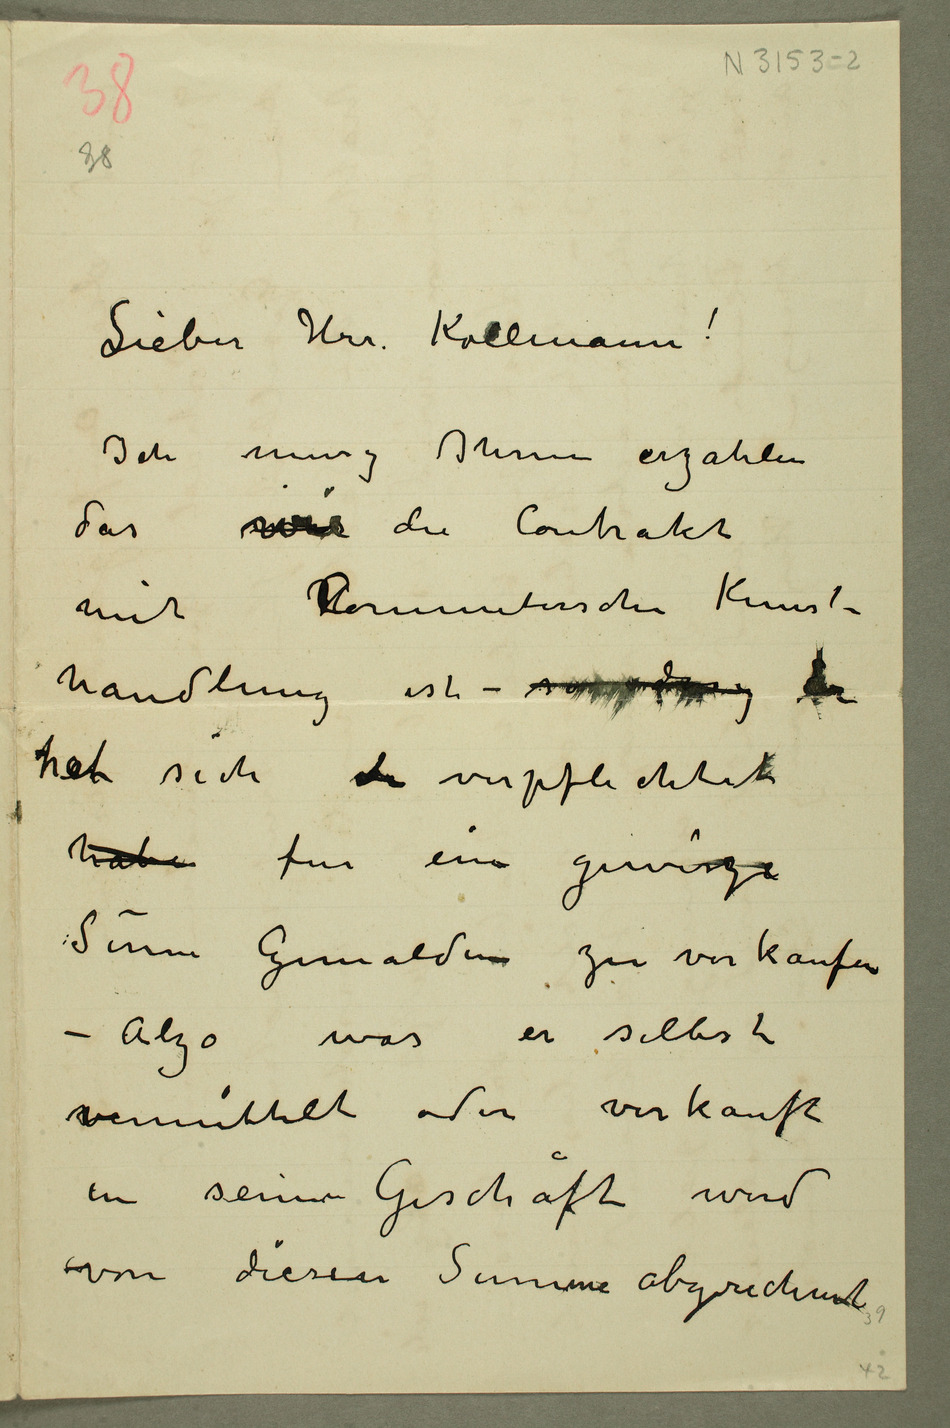 38
N 3153-2
38
Lieber Herr. Kollmann!
Ich muss Ihnen erzählen
das wie die Contrakt
mit Commeterschen Kunst-
handlung ist – Er
hat sich verpflichtet
habe fur ein gewisze
Sūme Gemälden zu verkaufen
– Alzo was er selbst
vermittelt oder verkauft
in seine Geschåft wird
von diesen Summe abgerechnet
39
42